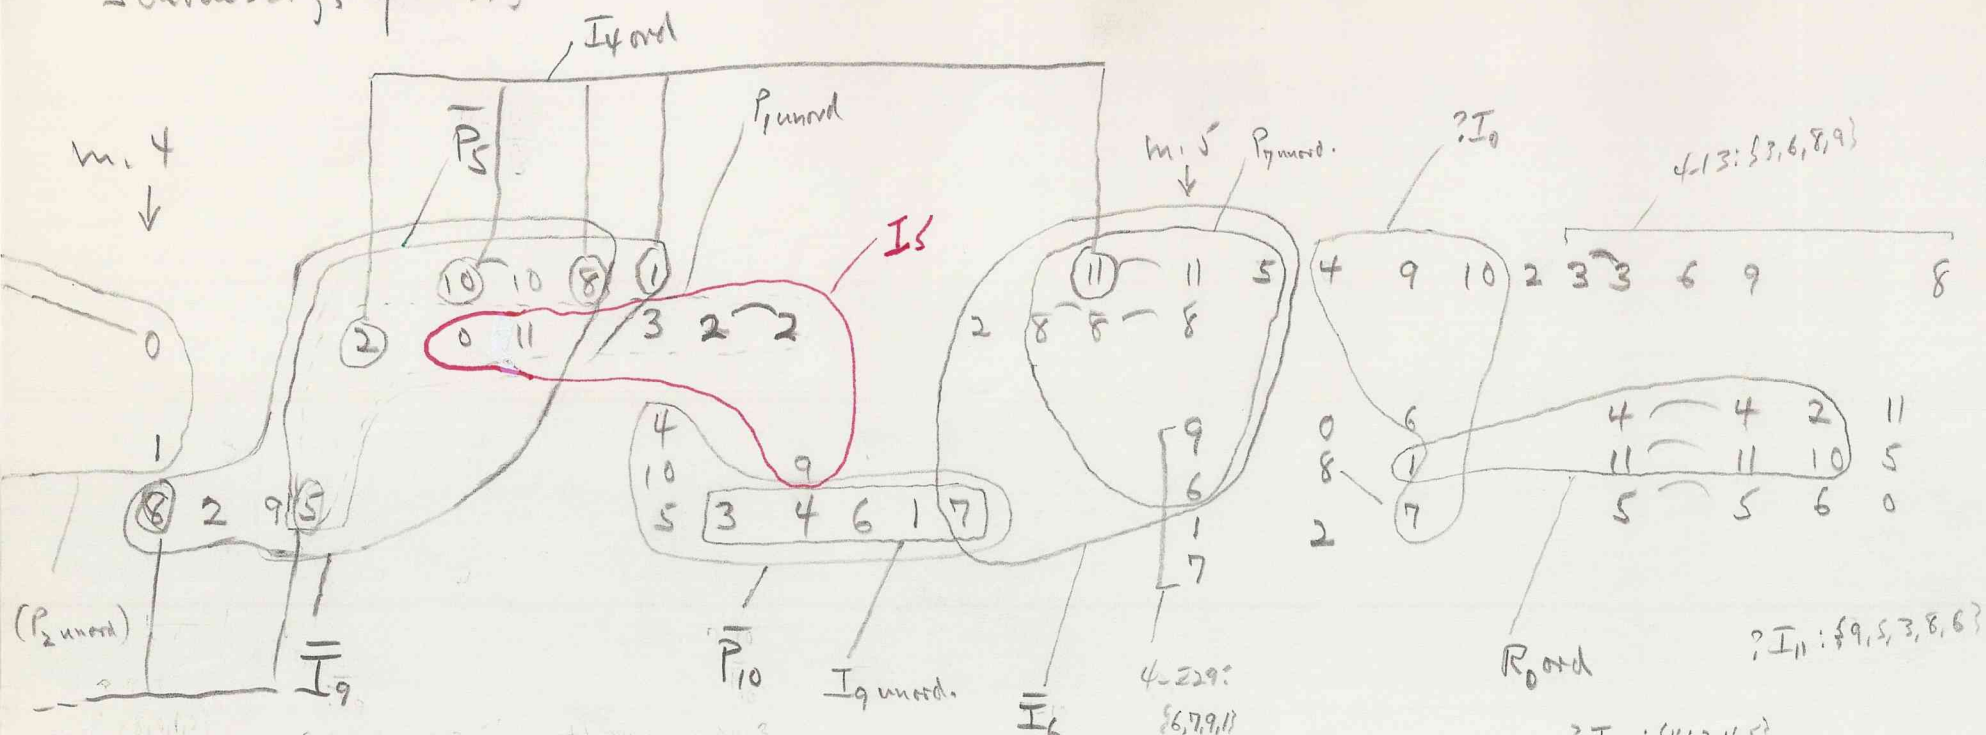 I4 ord
P1 unord
m. 4
P5
m. 5
P7 unord.
?I0
4-13: {3,6,8,9}
I5
10 10 8 1 11 11 5 4 9 10 2 3 3 6 9 8
0 2 0 11 3 2 2 2 8 8 8
1 4 10 5 9 9 6 1 7 0 8 2 6 1 7 4 4 2 11
11 11 10 5
8 2 9 5 3 4 6 1 7 5 5 6 0
(P2 unord)
I9
P10
I9 unord.
I6
4-Z29:
{6,7,9,1}
R0 ord
?I11: {9,5,3,8,6}